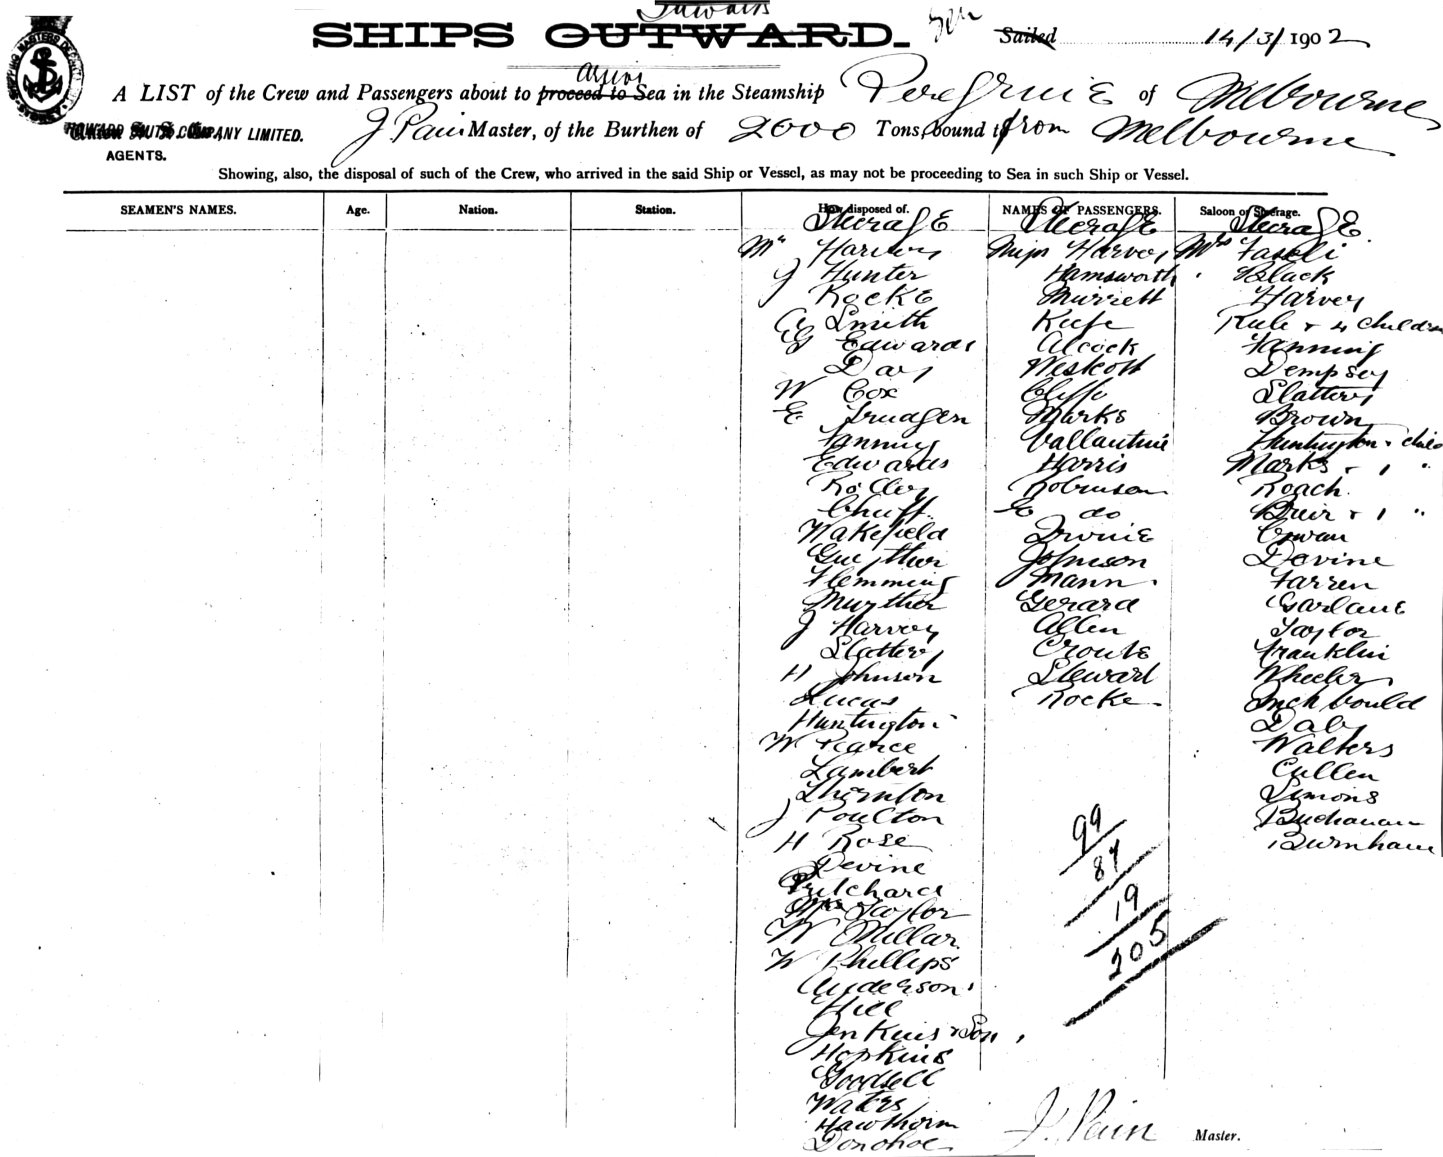 Inwards
SHIPS OUTWARD.
Sailed 14/3/1902
arrive
A LIST of the Crew and Passengers about to proceed to Sea in the Steamship Peregrine of Melbourne
HOWARD SMITH COMPANY LIMITED.
AGENTS.
J Pain Master, of the Burthen of 2000 Tons, bound to from Melbourne
Showing, also, the disposal of such of the Crew, who arrived in the said Ship or Vessel, as may not be proceeding to Sea in such Ship or Vessel.
SEAMEN'S NAMES.
Age.
Nation.
Station.
How disposed of.
Steerage
Mr Harvey
J Hunter
Rocke
Smith
Edwards
Day
W Cox
E Trudgen
Fanning
Edwards
Chuff
Wakefield
Guyther
Flemming
Murther
J Harvey
Slattery
H Johnson
Lucas
Huntington
W Pearce
Lambert
Thornton
J Poulton
H Rose
Devine
Pritchard
Mrs Taylor
W Millar
W Phillips
Anderson
Hill
Jenkins & Son
Hopkins
Goodsell
Waters
Hawthorn
Donohoe
NAMES OF PASSENGERS.
Steerage
Miss Harvey
Hamsworth
Murrett
Keefe
Alcock
Westcott
Cliffe
Marks
Vallantine
Harris
Robinson
E do
Irvine
Johnson
Mann
Gerard
Allen
Croute
Steward
Rocke
99
87
19
205
Saloon or Steerage.
Steerage
Mrs Faseli
Black
Harvey
Rule & 4 children
Fanning
Dempsey
Slattery
Brown
Huntington & child
Marks & 1 "
Roach
Buir & 1 "
Cowan
Devine
Farren
Garland
Taylor
Franklin
Wheeler
Inchbould
Daly
Walters
Cullen
Simons
Buchanan
Burnham
J. Pain Master.